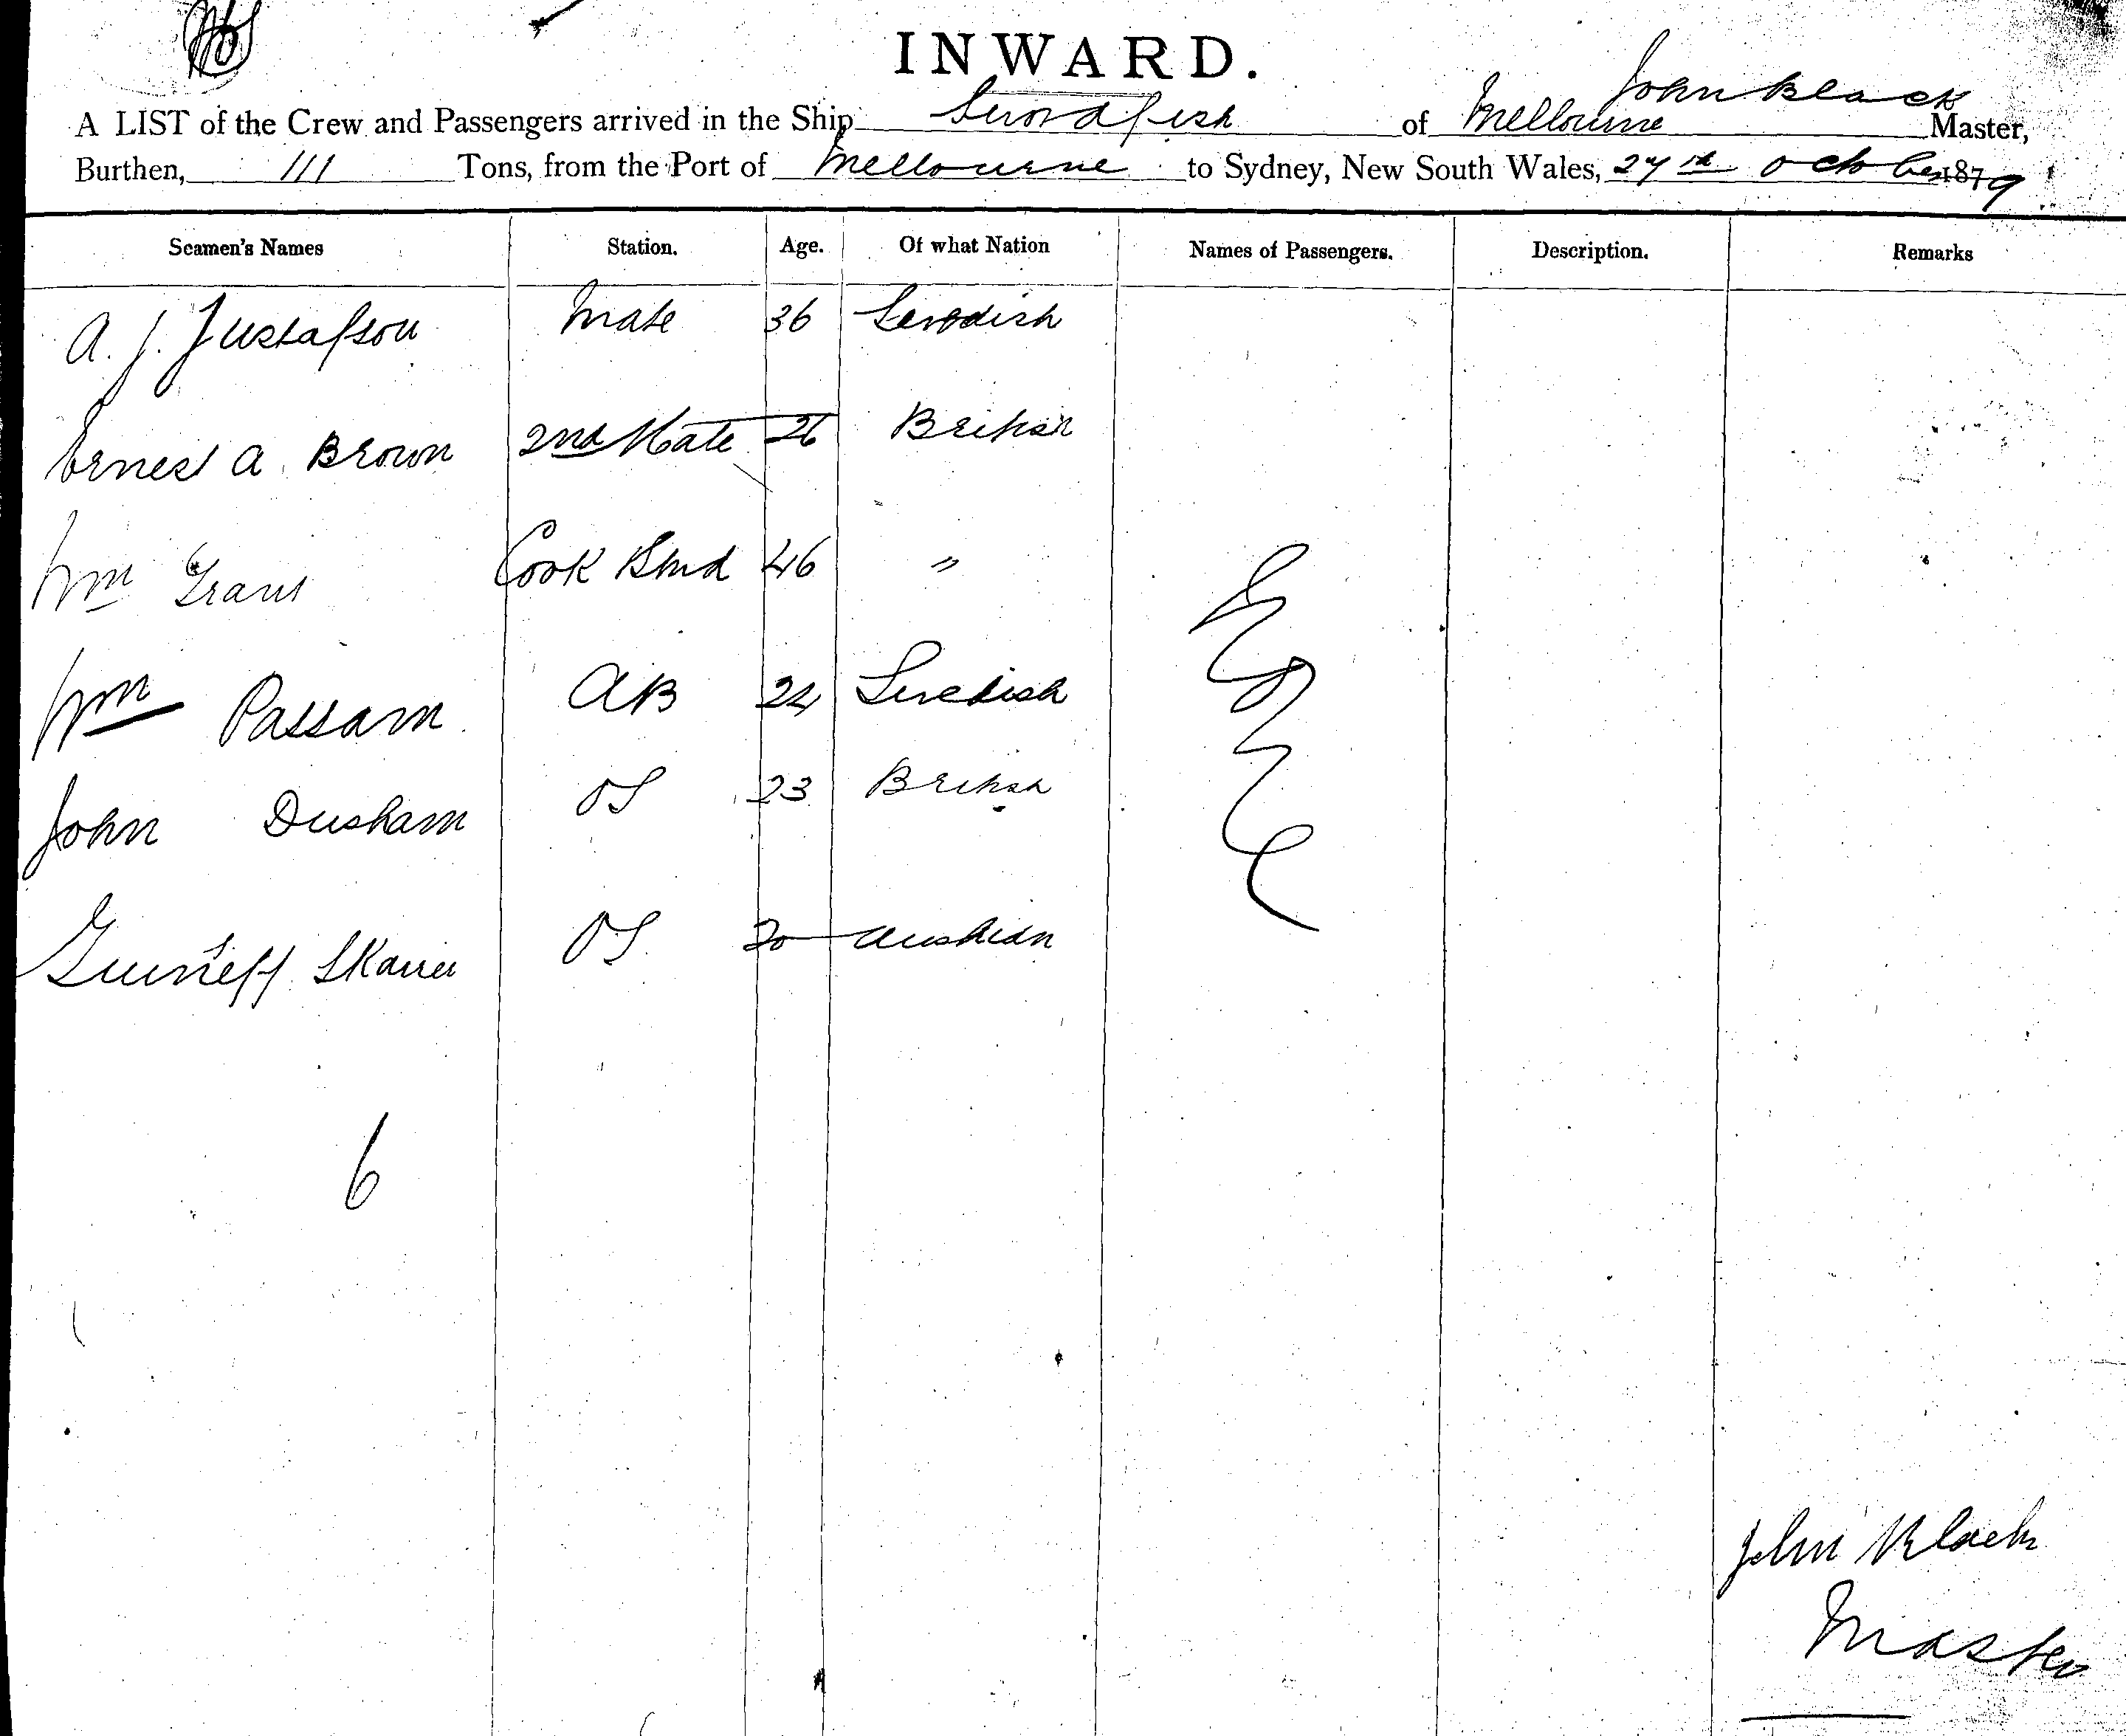 INWARD.
John Black
A LIST of the Crew and Passengers arrived in the Ship Swordfish of Melbourne Master,
Burthen, 111 Tons, from the Port of Melbourne to Sydney, New South Wales, 27th October 1879
Seamen's Names Station. Age. Of what Nation Names of Passengers. Description. Remarks
A. J. Gustafson Mate 36 Swedish
Ernest A. Brown 2nd Mate 26 British
Wm Grant Cook Stwd 46 "
Wm Passam AB 24 Swedish
John Dusham OS 23 British
OS 20 Austrian
6
John Black
Master